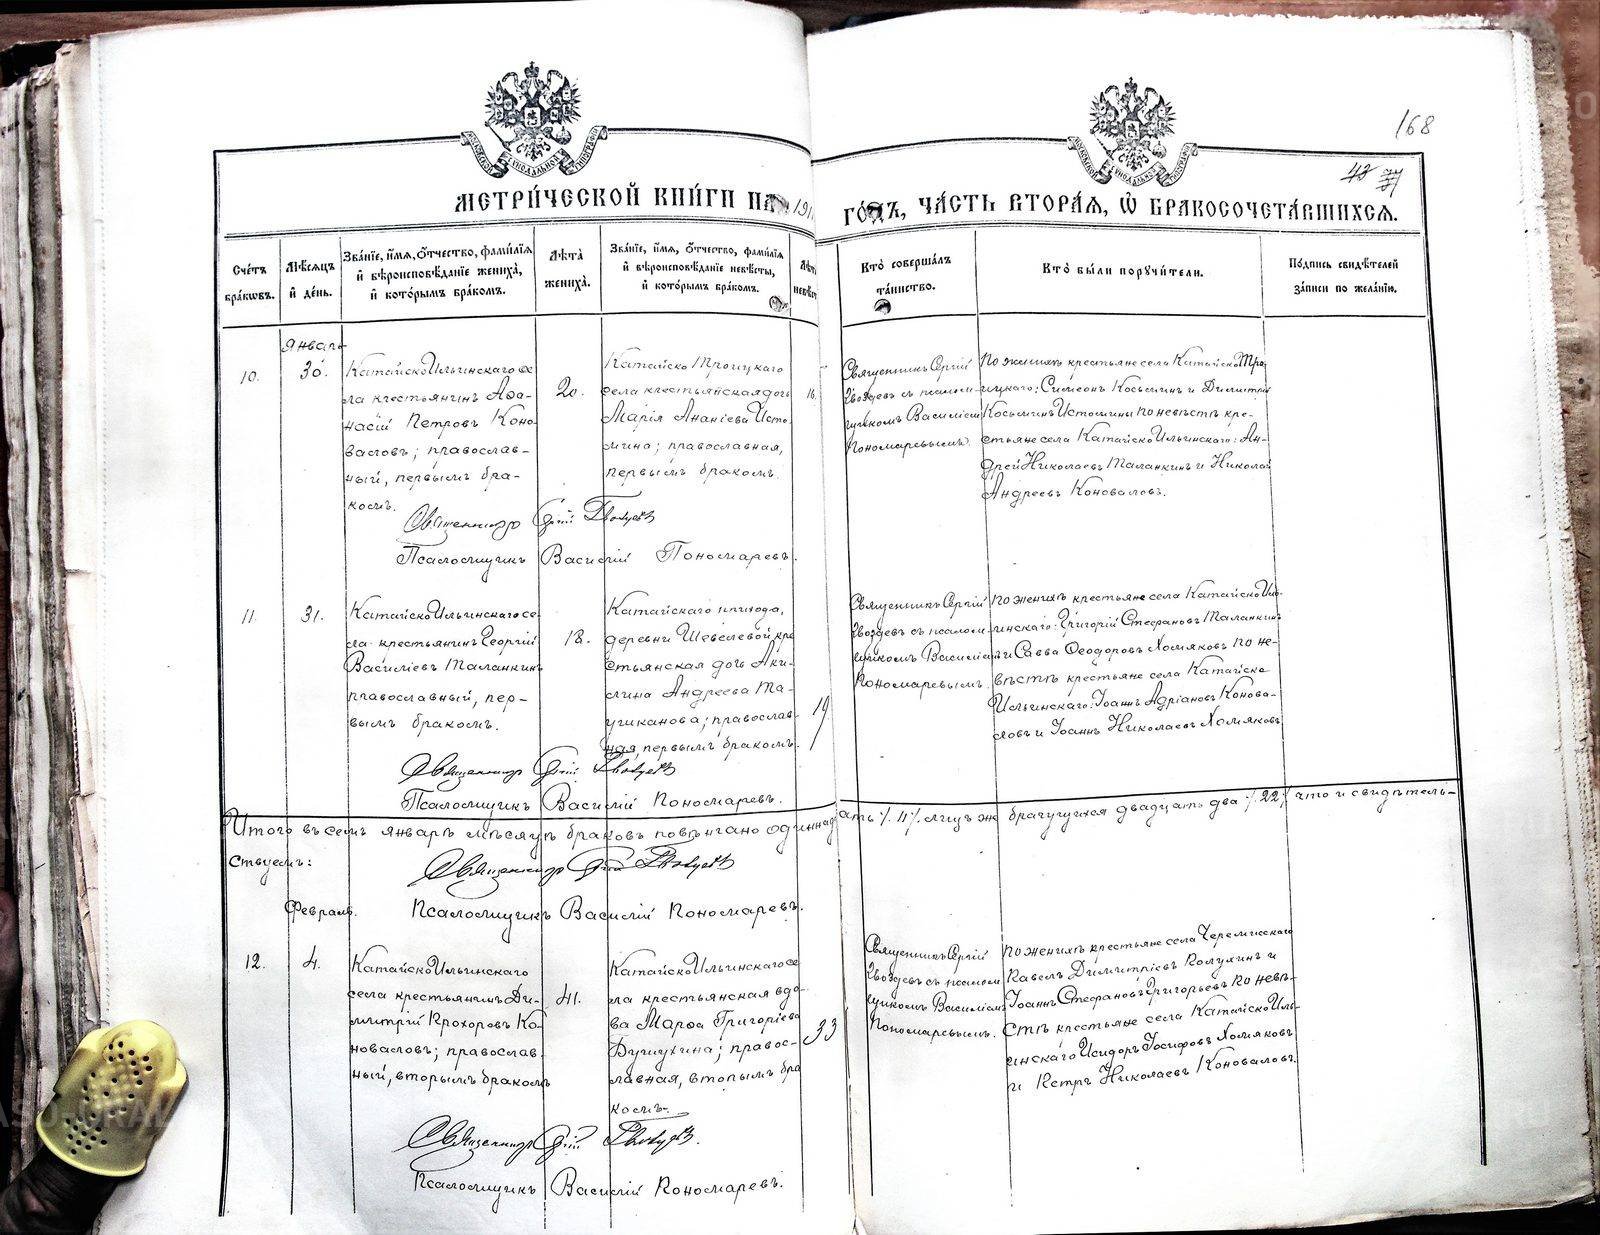 168
43 77
МЕТРИ́ЧЕСКОЙ КНИ́ГИ НА 191
ГО́ДЪ, ЧА́СТЬ ВТОРА́Я, Ѽ БРАКОСОЧЕТА́ВШИХСЯ.
Сче́тъ бра́ковъ.
Мѣ́сяцъ и де́нь.
Зва́нїе, и́мя, о́тчество, фами́лїя
и вѣроисповѣ́данїе жениха́,
и кото́рымъ бра́комъ.
Лѣта̀ жениха̀.
Зва́нїе, и́мя, о́тчество, фами́лїя
и вѣроисповѣ́данїе невѣ́сты,
и кото́рымъ бра́комъ.
Лѣта невѣст
Кто̀ соверша́лъ
та́инство.
Кто̀ бы́ли поручи́тели.
По́дпись свидѣ́телей
за́писи по жела́нїю.
Январь
10.
30.
Катайско Ильинскаго се
ла крестьянинъ Аѳа-
насій Петровъ Коно
валовъ; православ-
ный, первымъ бра-
комъ.
20.
Катайско Троицкаго
села крестьянская дочь
Марія Ананіева Исто
мина; православная,
первымъ бракомъ.
16.
Священникъ Сергій
Гвоздевъ съ псалом
щикомъ Василіемъ
Пономаревымъ.
По женихѣ крестьяне села Катайско Тро-
ицкаго: Симеонъ Косьминъ и Димитрій
Косьминъ Истомины по невѣстѣ кре-
стьяне села Катайско Ильинскаго: Ан-
дрей Николаевъ Таланкинъ и Николай
Андреевъ Коноваловъ.
Священникъ Сергій Гвоздевъ
Псаломщикъ Василій Пономаревъ.
11.
31.
Катайско Ильинскаго се-
ла крестьянинъ Георгій
Василіевъ Таланкинъ
православный, пер-
вымъ бракомъ.
18.
Катайскаго прихода,
деревни Шевелевой кре
стьянская дочь Аки-
лина Андреева Та-
ушканова; православ-
ная, первымъ бракомъ.
19
Священникъ Сергій
Гвоздевъ съ псалом
щикомъ Василіемъ
Пономаревымъ.
По женихѣ крестьяне села Катайско Иль-
инскаго: Григорій Стефановъ Таланкинъ
и Савва Ѳеодоровъ Хомяковъ по не-
вѣстѣ крестьяне села Катайско
Ильинскаго: Іоаннъ Адріановъ Конова-
ловъ и Іоаннъ Николаевъ Хомяковъ
Священникъ Сергій Гвоздевъ
Псаломщикъ Василій Пономаревъ.
Итого въ семъ январѣ мѣсяцѣ браковъ повѣнчано одиннад
ать /. 11 /. лицъ же брачущихся двадцать два /. 22 /. что и свидѣтель-
ствуемъ:
Священникъ Сергій Гвоздевъ
Псаломщикъ Василій Пономаревъ.
Февраль.
12.
4.
Катайско Ильинскаго
села крестьянинъ Ди-
митрій Прохоровъ Ко
новаловъ; православ
ный, вторымъ бракомъ
41.
Катайско Ильинскаго се
ла крестьянская вдо
ва Марѳа Григоріева
православная, вторымъ бра
комъ.
33
Священникъ Сергій
Гвоздевъ съ псалом
щикомъ Василіемъ
Пономаревымъ.
По женихѣ крестьяне села Черемисскаго
Павелъ Димитріевъ и
Іоаннъ Стефановъ Григорьевъ по невѣ-
стѣ крестьяне села Катайско Иль-
инскаго Исидоръ Іосифовъ Хомяковъ
и Петръ Николаевъ Коноваловъ.
Священникъ Сергій Гвоздевъ.
Псаломщикъ Василій Пономаревъ.